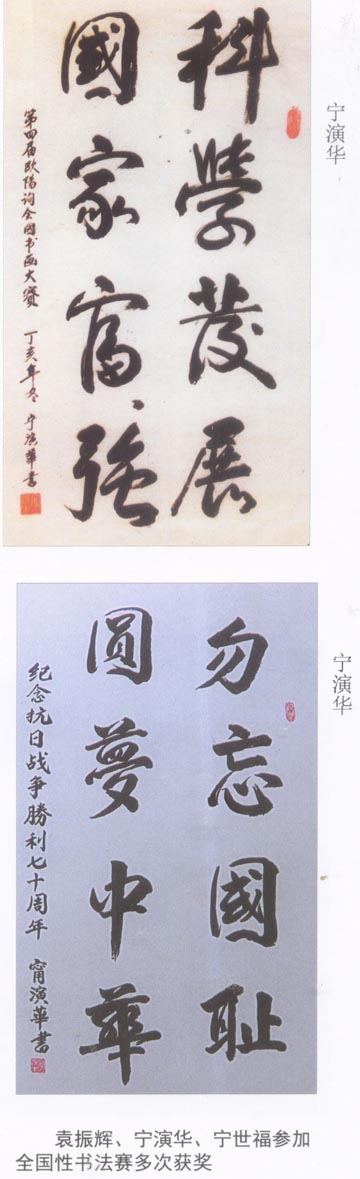 宁演华
科學發展
國家富強
第四届欧陽询全國书画大赛 丁亥年冬 宁演華書
宁演华
勿忘國耻
圓夢中華
纪念抗日战争勝利七十周年 甯演華書
袁振辉、宁演华、宁世福参加
全国性书法赛多次获奖